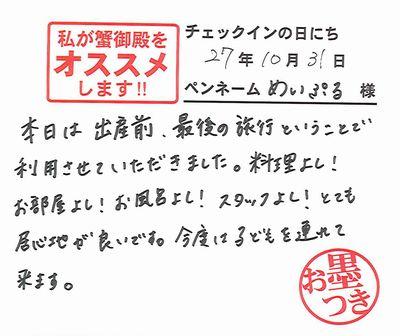 私が蟹御殿を
オススメ
します!!
チェックインの日にち
27年10月31日
ペンネーム めいぷる 様
本日は出産前、最後の旅行ということで
利用させていただきました。料理よし!
お部屋よし!お風呂よし!スタッフよし!とても
居心地が良いです。今度は子どもを連れて
来ます。
お墨
つき